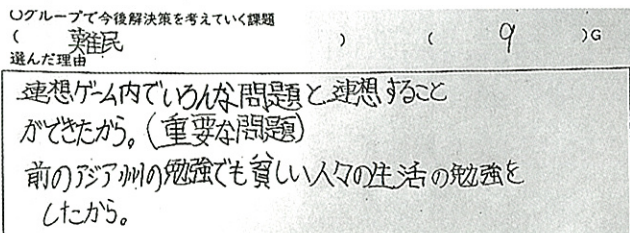 ○グループで今後解決策を考えていく課題
( 難民 ) ( 9 )G
選んだ理由
連想ゲーム内でいろんな問題と連想すること
ができたから。(重要な問題)
前のアジア州の勉強でも貧しい人々の生活の勉強を
したから。